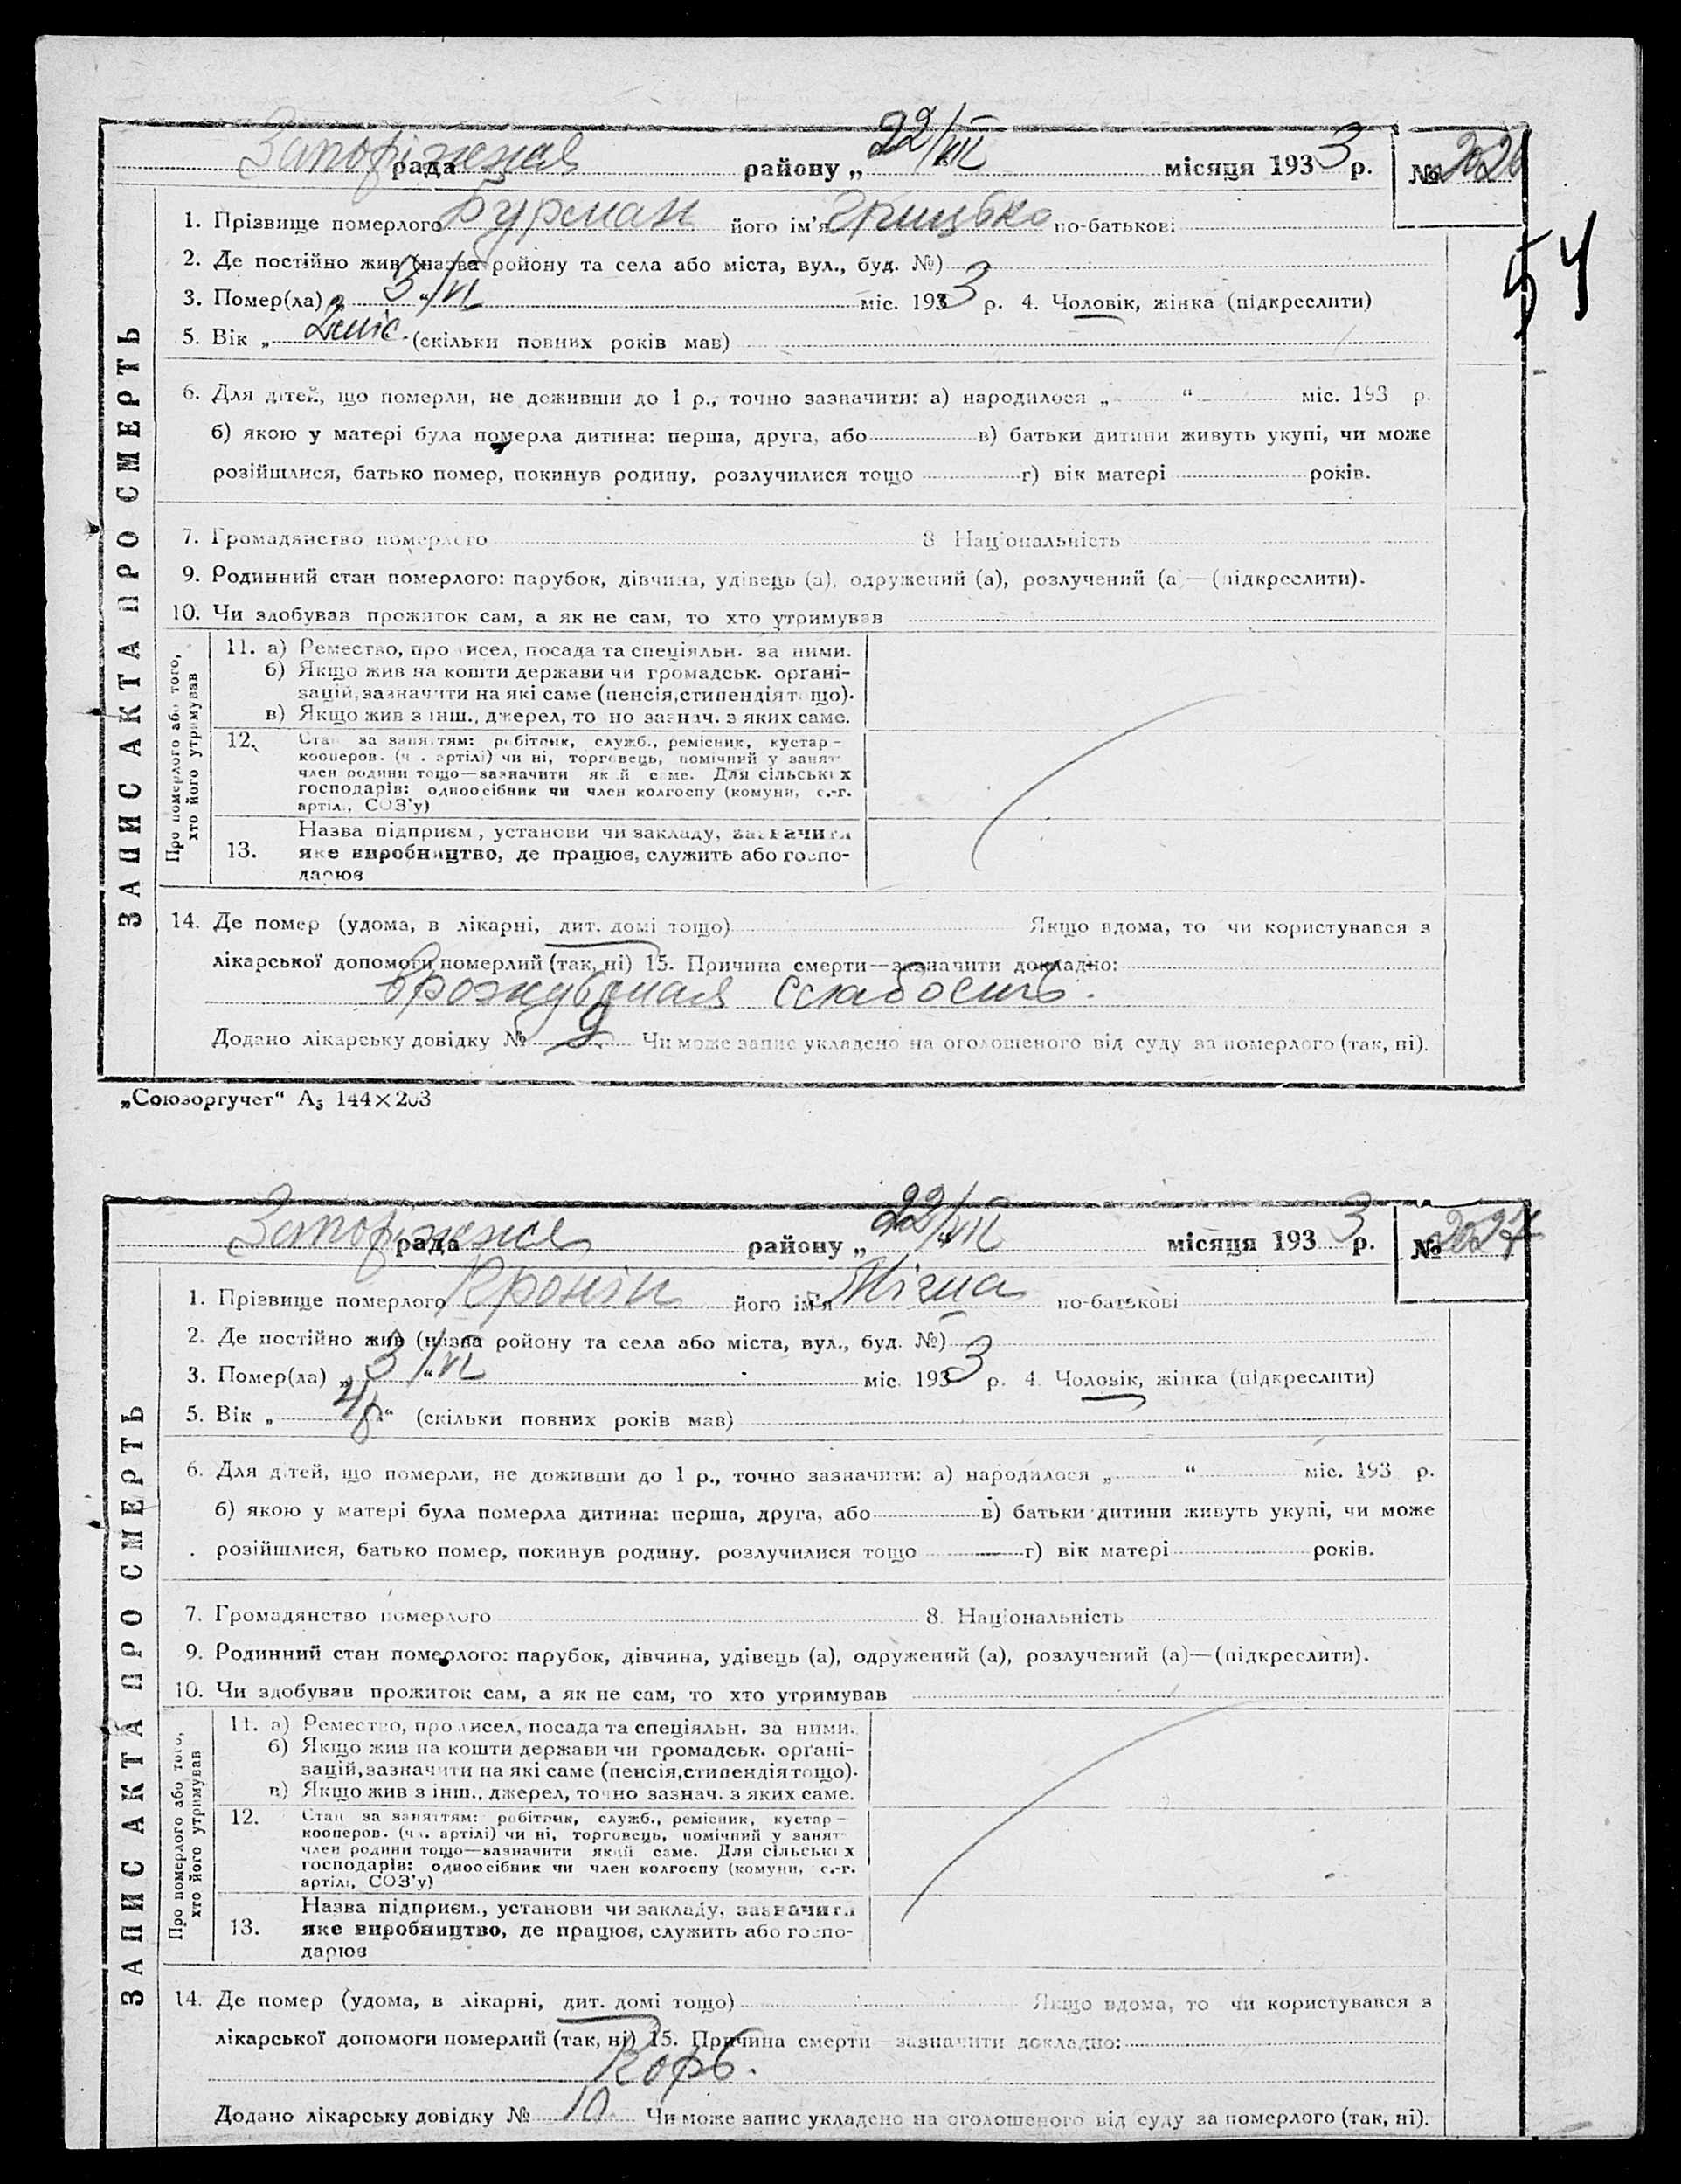 Запоріжжя рада району „ 22/VII місяця 1933 р. № 2026
54
1. Прізвище померлого Бурман його ім'я Грицько по-батькові
2. Де постійно жив (назва ройону та села або міста, вул., буд. №)
3. Помер(ла) „ 3 “ /VI міс. 1933 р. 4. Чоловік, жінка (підкреслити)
5. Вік „ 2 міс. (скільки повних років мав)
6. Для дітей, що померли, не доживши до 1 р., точно зазначити: а) народилося „ “ міс. 193 р.
б) якою у матері була померла дитина: перша, друга, або в) батьки дитини живуть укупі, чи може
розійшлися, батько помер, покинув родину, розлучилися тощо г) вік матері років.
7. Громадянство померлого 8 Національність
9. Родинний стан померлого: парубок, дівчина, удівець (а), одружений (а), розлучений (а)—(підкреслити).
10. Чи здобував прожиток сам, а як не сам, то хто утримував
ЗАПИС АКТА ПРО СМЕРТЬ
Про померлого або того, хто його утримував
11. а) Ремество, промисел, посада та спеціяльн. за ними.
б) Якщо жив на кошти держави чи громадськ. орґані-
зацій, зазначити на які саме (пенсія, стипендія тощо).
в) Якщо жив з інш., джерел, точно зазнач. з яких саме.
12. Стан за заняттям: робітник, служб., ремісник, кустар-
кооперов. (чл. артілі) чи ні, торговець, помічний у занят-
член родини тощо—зазначити який саме. Для сільських
господарів: одноосібник чи член колгоспу (комуни, с.-г.
артілі, СОЗ'у)
13. Назва підприєм., установи чи закладу, зазначити
яке виробництво, де працює, служить або госпо-
дарює
14. Де помер (удома, в лікарні, дит. домі тощо) Якщо вдома, то чи користувався з
лікарської допомоги померлий (так, ні) 15. Причина смерти—зазначити докладно:
врождьонная слабость.
Додано лікарську довідку № 9 Чи може запис укладено на оголошеного від суду за померлого (так, ні).
„Союзоргучет“ А5 144×203
Запоріжжя рада району „ 22/VII місяця 1933 р. № 2027
1. Прізвище померлого Кронін його ім'я по-батькові
2. Де постійно жив (назва ройону та села або міста, вул., буд. №)
3. Помер(ла) „ 3 “ /VI міс. 1933 р. 4. Чоловік, жінка (підкреслити)
5. Вік „ 4 р “ (скільки повних років мав)
6. Для дітей, що померли, не доживши до 1 р., точно зазначити: а) народилося „ “ міс. 193 р.
б) якою у матері була померла дитина: перша, друга, або в) батьки дитини живуть укупі, чи може
розійшлися, батько помер, покинув родину, розлучилися тощо г) вік матері років.
7. Громадянство померлого 8. Національність
9. Родинний стан померлого: парубок, дівчина, удівець (а), одружений (а), розлучений (а)—(підкреслити).
10. Чи здобував прожиток сам, а як не сам, то хто утримував
ЗАПИС АКТА ПРО СМЕРТЬ
Про померлого або того, хто його утримував
11. а) Ремество, промисел, посада та спеціяльн. за ними.
б) Якщо жив на кошти держави чи громадськ. орґані-
зацій, зазначити на які саме (пенсія, стипендія тощо).
в) Якщо жив з інш., джерел, точно зазнач. з яких саме.
12. Стан за заняттям: робітник, служб., ремісник, кустар-
кооперов. (чл. артілі) чи ні, торговець, помічний у занят-
член родини тощо—зазначити який саме. Для сільських
господарів: одноосібник чи член колгоспу (комуни, с.-г.
артілі, СОЗ'у)
13. Назва підприєм., установи чи закладу, зазначити
яке виробництво, де працює, служить або госпо-
дарює
14. Де помер (удома, в лікарні, дит. домі тощо) Якщо вдома, то чи користувався з
лікарської допомоги померлий (так, ні) 15. Причина смерти—зазначити докладно:
Корь.
Додано лікарську довідку № 10. Чи може запис укладено на оголошеного від суду за померлого (так, ні).